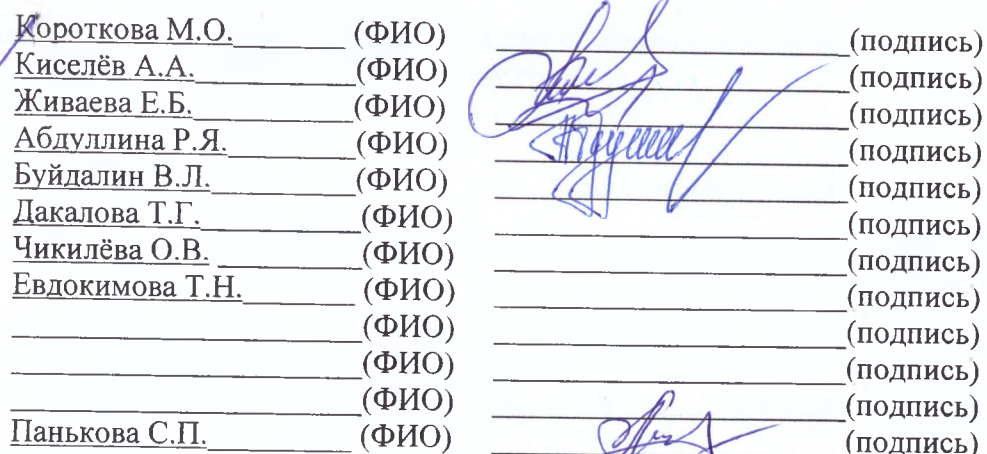 Короткова М.О.__________ (ФИО) __________ (подпись)
Киселёв А.А.__________ (ФИО) __________ (подпись)
Живаева Е.Б.__________ (ФИО) __________ (подпись)
Абдуллина Р.Я.__________ (ФИО) __________ (подпись)
Буйдалин В.Л.__________ (ФИО) __________ (подпись)
Дакалова Т.Г.__________ (ФИО) __________ (подпись)
Чикилёва О.В. __________ (ФИО) __________ (подпись)
Евдокимова Т.Н.__________ (ФИО) __________ (подпись)
__________ (ФИО) __________ (подпись)
__________ (ФИО) __________ (подпись)
__________ (ФИО) __________ (подпись)
Панькова С.П.__________ (ФИО) __________ (подпись)